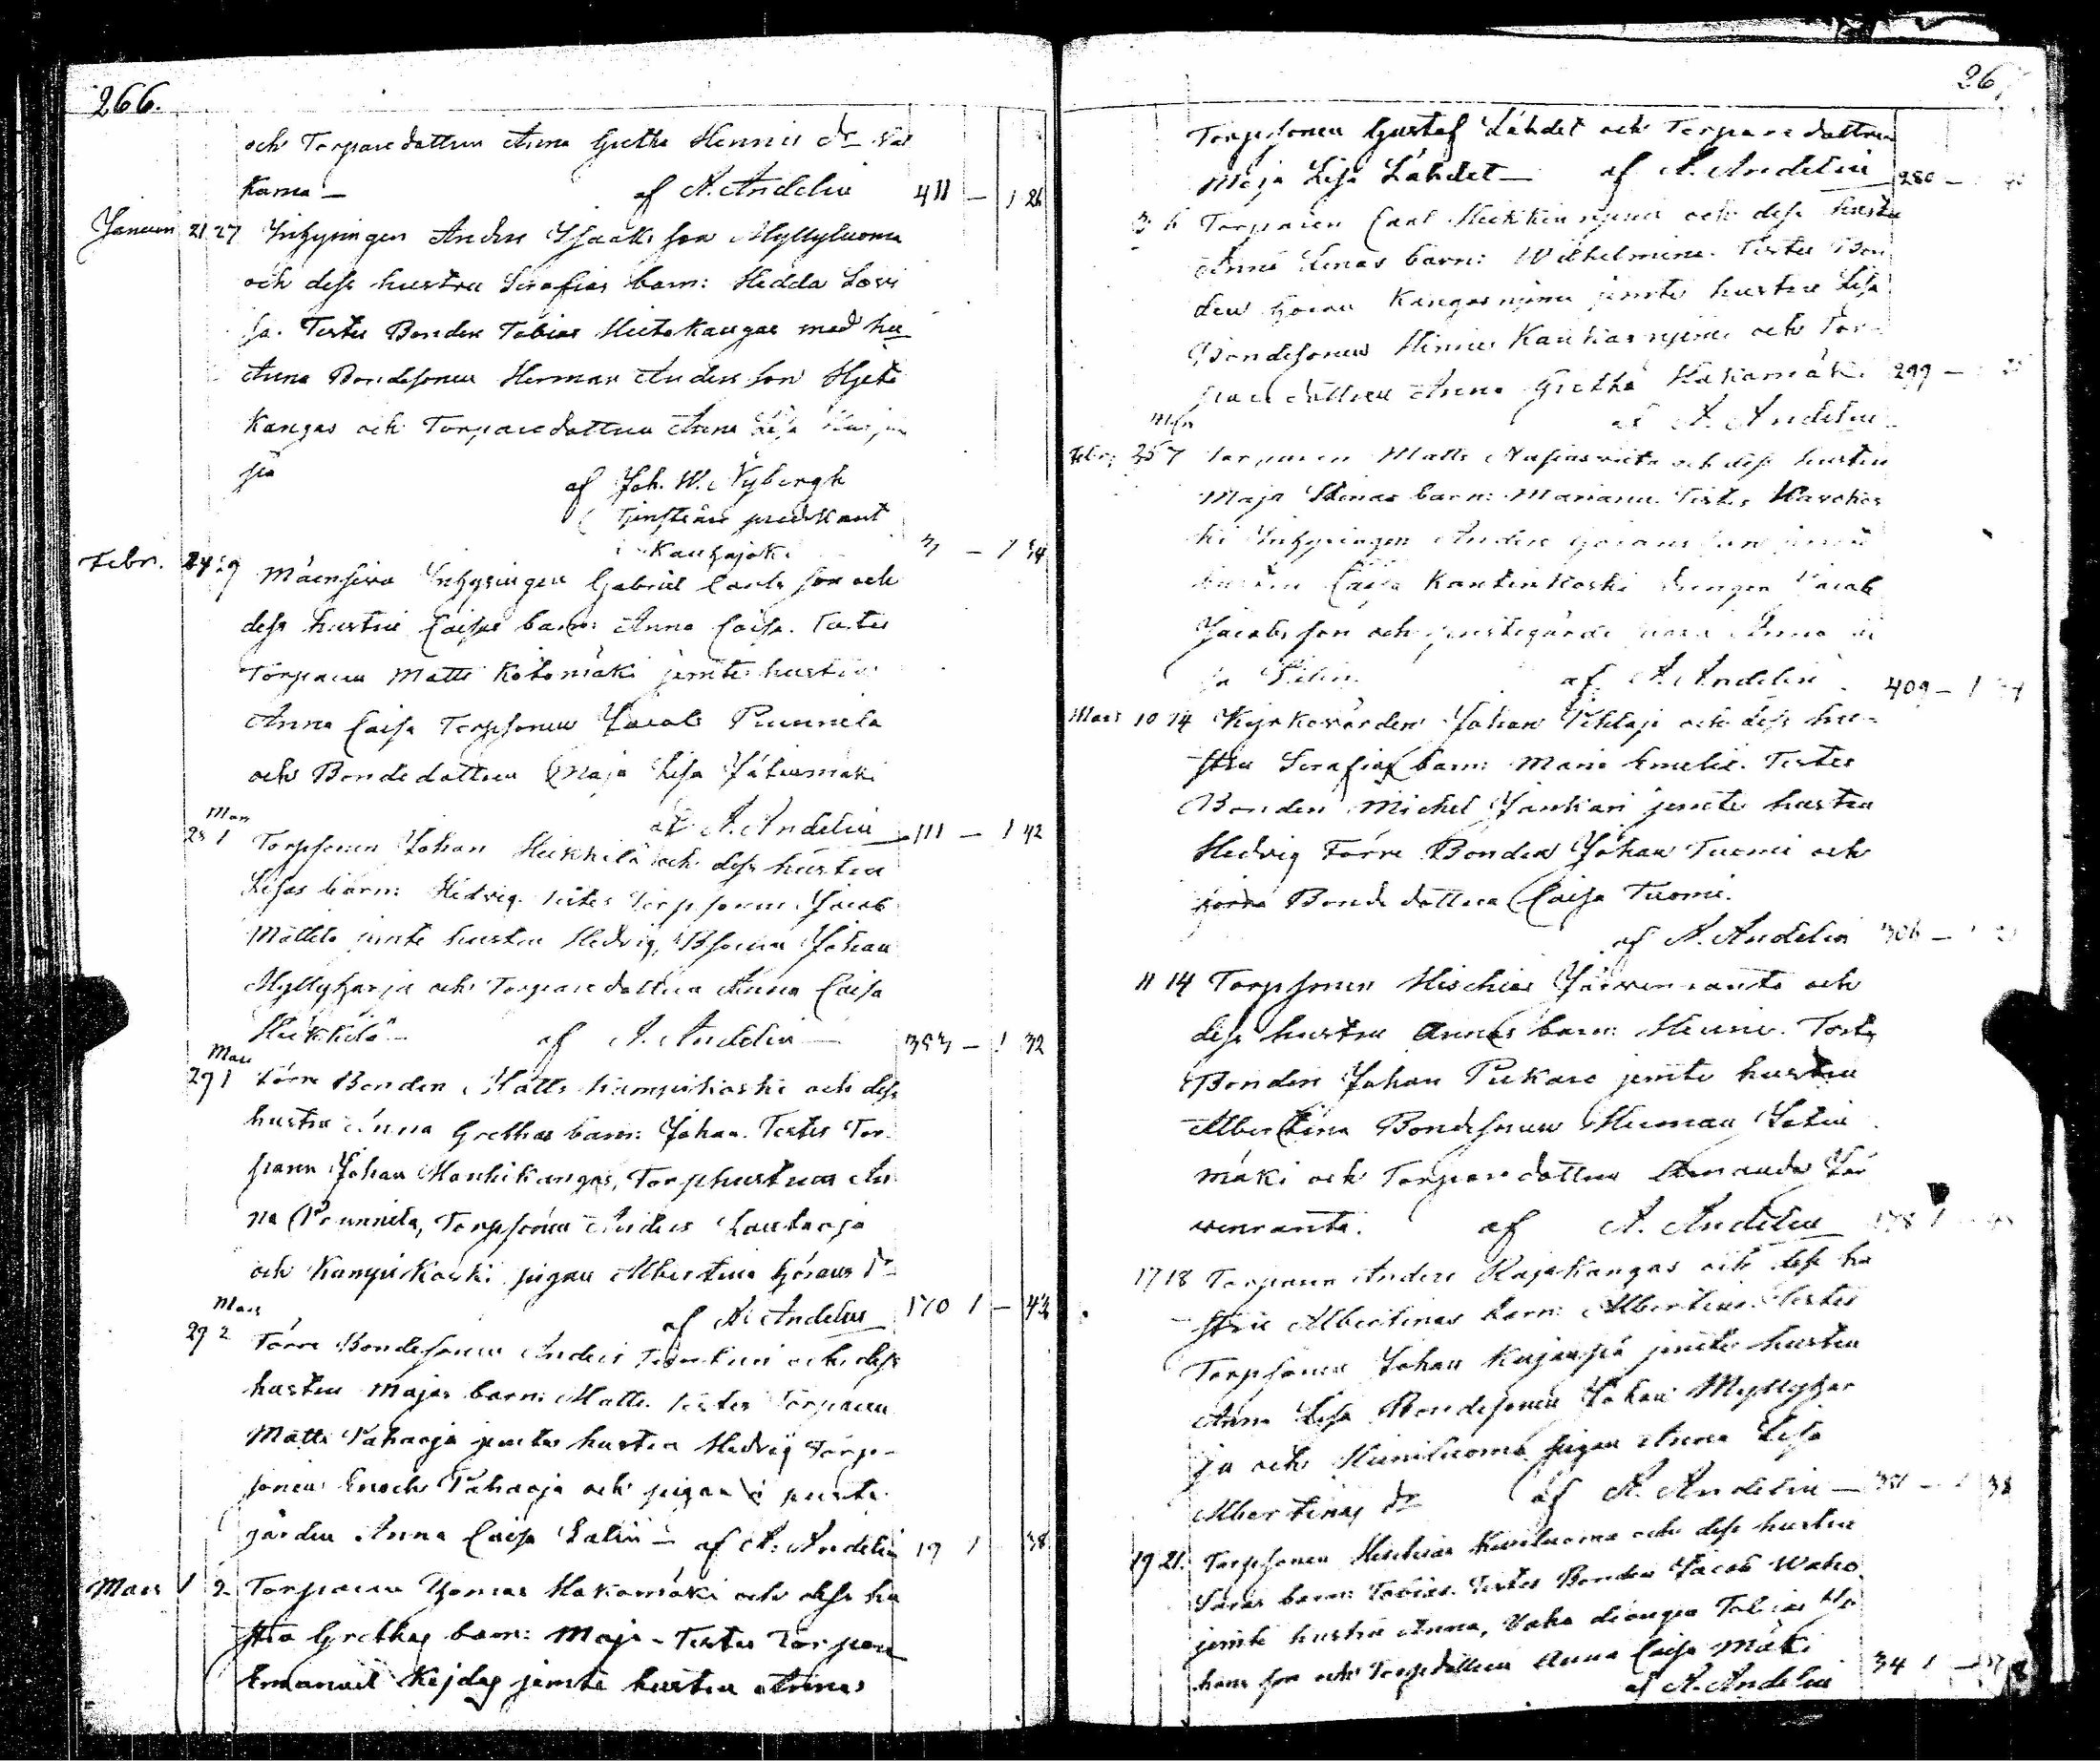 266.
och Torparedottren Anna Gretha Hennis dr Val
kama — af A. Andelin 411 — 1 26
Januari 21 27 Inhysingen Anders Isaaks son Myllyluoma
och dess hustru Serafias barn: Hedda Lovi
sa. Testes Bonden Tobias Hietakangas med hu
Anna Bondesonen Herman Anders son Hjeta
kangas och Torparedottren Anna Lisa
pä af Joh. W. Nybergh
Tjenstgörande predikant
i Kauhajoki 3 — 1 34
Febr. 24 29 Mäensivu Inhysingen Gabriel Carls son och
dess hustru Caisas barn: Anna Caisa. Testes
Torparen Matts Kotomäki jemte hustru
Anna Caisa Torpsonen Jacob Punnela
och Bondedottren Maja Lisa Yätinmäki
af A. Andelin 111 — 1 42
Mars
28 1 Torpsonen Johan Heikkilä och dess hustru
Lisas barn: Hedvig. Testes Torpsonen Jacob
Mattila jemte hustru Hedvig, Bsonen Johan
Myllyharja och Torparedottren Anna Caisa
Heikkilä — af A. Andelin 353 — 1 32
Mars
29 1 Förre Bonden Matts Kampinkoski och dess
hustru Anna Grethas barn: Johan. Testes Tor
paren Johan Hanhikangas, Torphustrun An
na Punnela, Torpsonen Anders Lautaoja
och Kampinkoski pigan Albertina Görans dr
af A. Andelin 170 1 — 43
Mars
29 2 Förre Bondesonen Anders och dess
hustru Majas barn: Matts. Testes Torparen
Matts Pahaoja jemte hustru Hedvig Torp-
sonen Enoch Pahaoja och pigan i preste
gården Anna Caisa Salin — af A. Andelin 19 1 38
Mars 1 2 Torparen Thomas Hakomäki och dess hu
stru Grethas barn: Maja — Testes Torparen
Emanuel Kejdas jemte hustru Annas
26
Torpsonen Gustaf Lähdet och Torparedottren
Maja Lisa Lähdet — af A. Andelin 280 —
3 6 Torparen Carl Heikkinnjemi och dess hustru
Anna Lenas barn: Wilhelmina. Testes Bon
den Göran Kangasnjemi jemte hustru Lisa
Bondesonen Hinric Kauhasnjemi och Tor-
pare dottren Anna Gretha Hakamäki 299 —
af A. Andelin
Mars
Febr. 25 7 Torparen Matts och dess hustru
Maja Stinas barn: Mariana. Testes
ki Inhysingen Anders Görans son jemte
hustru Caisa Kantinkoski drengen Jacob
Jacobs son och prestegårds pigan Anna
af A. Andelin 409 — 1
Mars 10 14 Kyrkovärden Johan Pihlaja och dess hu-
stru Serafias barn: Maria Emelie. Testes
Bonden Michel Jankari jemte hustru
Hedvig Förre Bonden Johan Tuomi och
Bonde dottren Caisa Tuomi.
af A. Andelin 306 —
11 14 Torpsonen Hischias Järvenranta och
dess hustru Annas barn: Henric. Testes
Bonden Johan Pukara jemte hustru
Albertina Bondesonen Herman Yätin
mäki och Torparedottren Amanda Jär
venranta. af A. Andelin 178 1
17 18 Torparen Anders Rajakangas och dess hu
stru Albertinas barn: Albertina. Testes
Torpsonen Johan Kujanpä jemte hustru
Anna Lisa Bondesonen Johan Myllyhar
ja och Hiiriluoma pigan Anna Lisa
Albertinas dr af A. Andelin — 38
19 21. Torpsonen Hischias och dess hustru
Saras barn: Tobias. Testes Bonden Jacob Waho
jemte hustru Anna, Vaho drengen Tobias Jo
hans son och Torpdottren Anna Caisa Mäki
af A. Andelin 34 1